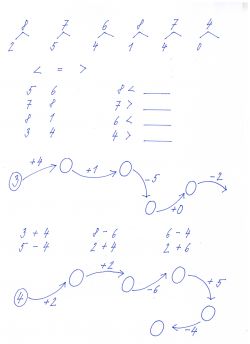 8 7 6 8 7 4
2 5 4 1 4 0
< = >
5 6 8 < ____
7 8 7 > ____
8 1 6 < ____
3 4 4 > ____
+4 +1 -5 +0 -2
3
3 + 4 8 - 6 6 - 4
5 - 4 2 + 4 2 + 6
4
+2 +2 -6 +5 -4